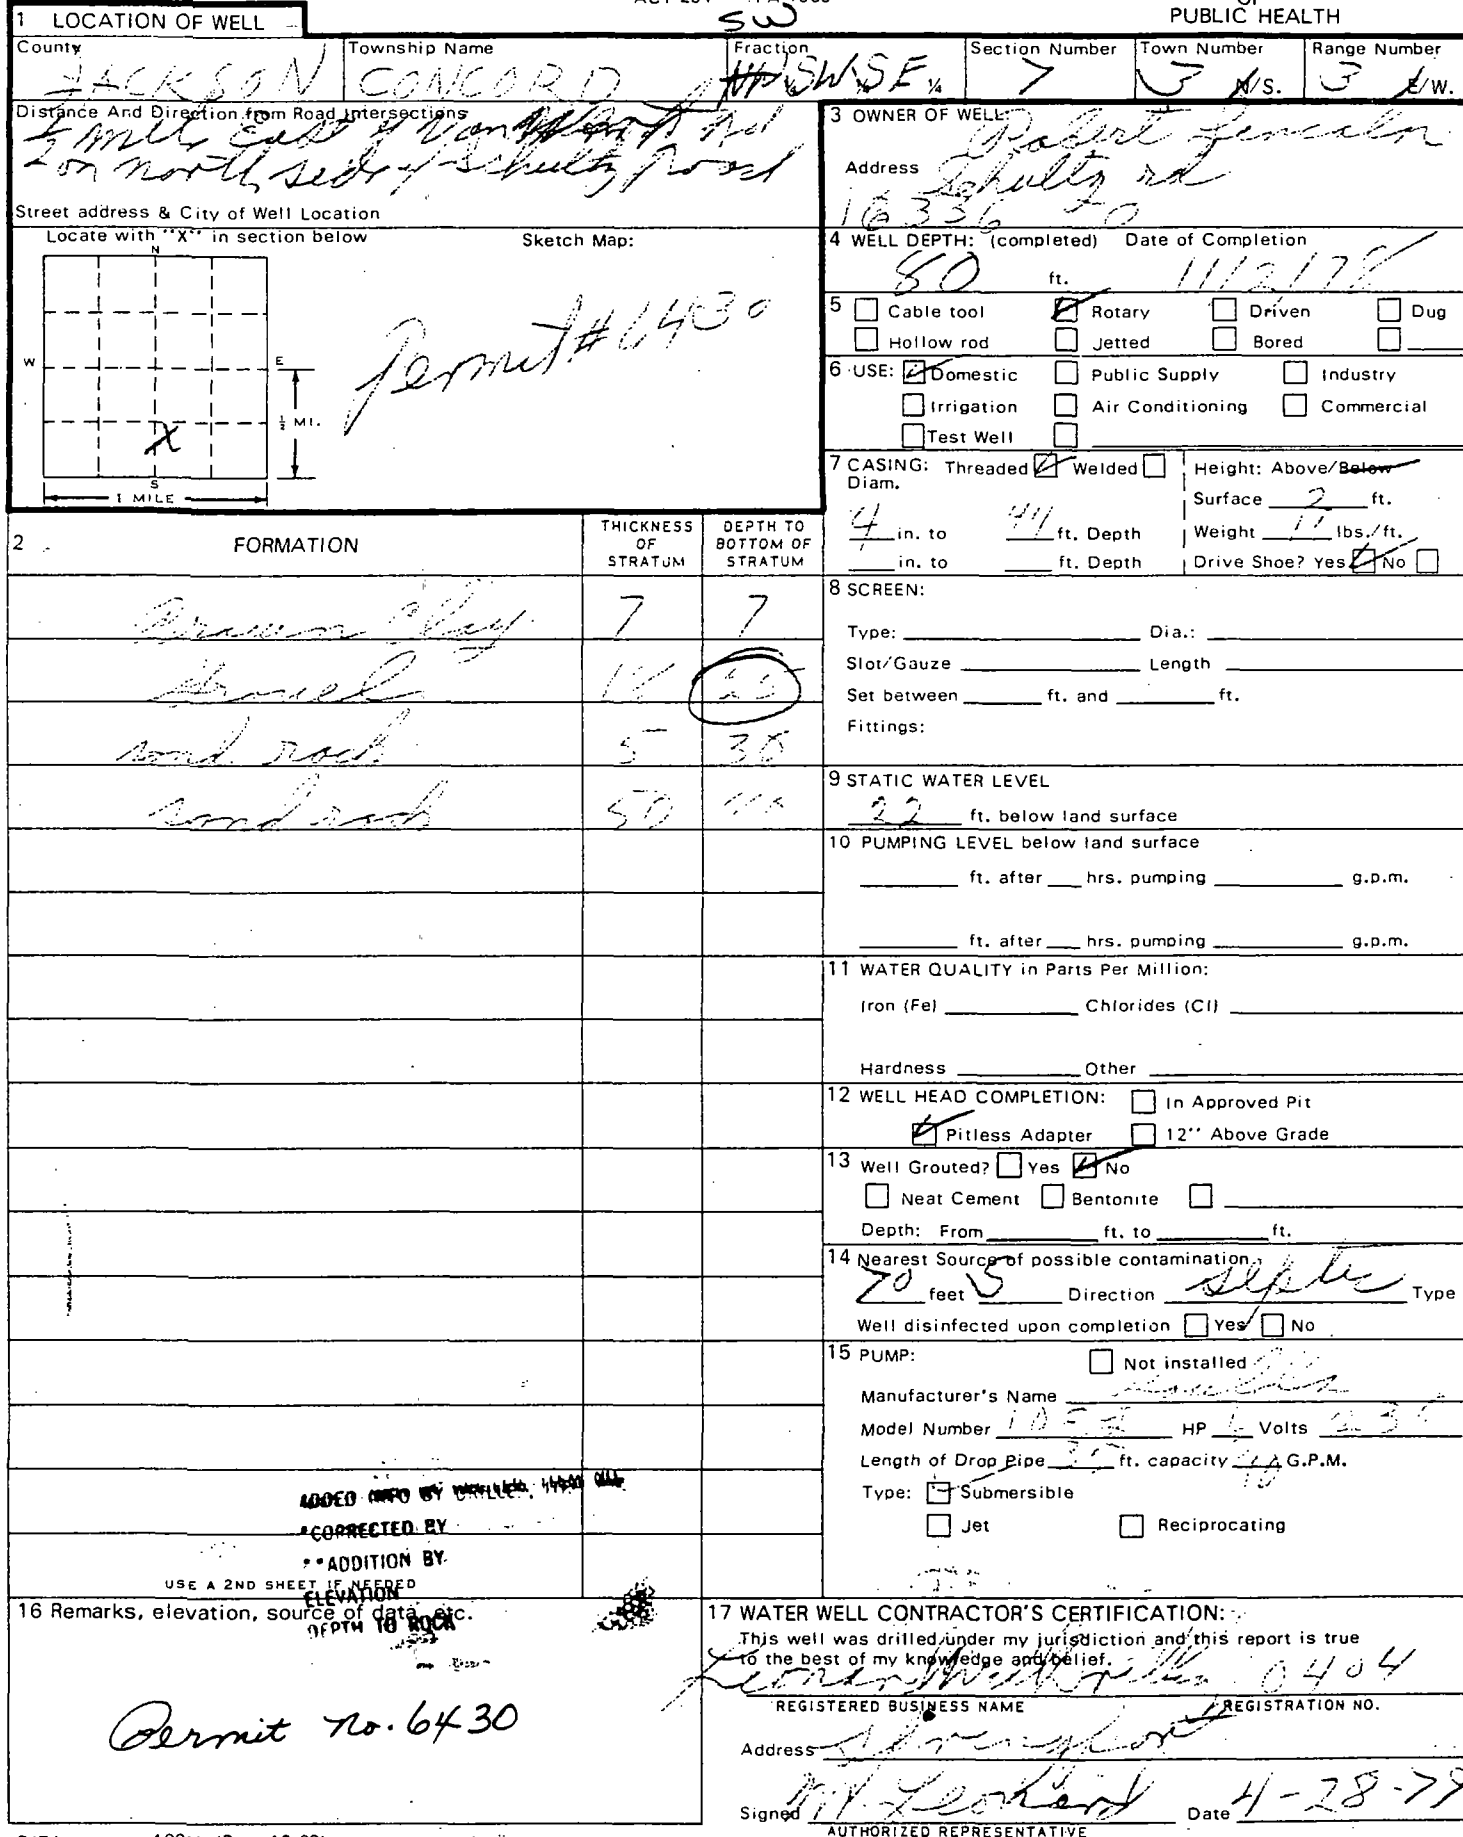 SW
PUBLIC HEALTH
1 LOCATION OF WELL
County JACKSON
Township Name CONCORD
Fraction SW SE ¼
Section Number 7
Town Number 3 N/S.
Range Number 3 E/W.
Distance And Direction from Road Intersections
½ mile East of Van Rd
on north side of Schultz Road
Street address & City of Well Location
Locate with "X" in section below
Sketch Map:
N
W
E
S
X
½ MI.
1 MILE
Permit # 6430
3 OWNER OF WELL: Robert Lincoln
Address Schultz rd
16336
4 WELL DEPTH: (completed) Date of Completion
80 ft. 11/2/78
5 Cable tool Rotary Driven Dug
Hollow rod Jetted Bored
6 USE: Domestic Public Supply Industry
Irrigation Air Conditioning Commercial
Test Well
7 CASING: Threaded Welded
Diam.
4 in. to 44 ft. Depth
in. to ft. Depth
Height: Above/Below
Surface 2 ft.
Weight 11 lbs./ft.
Drive Shoe? Yes No
2 FORMATION
THICKNESS OF STRATUM
DEPTH TO BOTTOM OF STRATUM
Brown Clay 7 7
Gravel 18 25
sand rock 5 30
sand rock 50
8 SCREEN:
Type: Dia.:
Slot/Gauze Length
Set between ft. and ft.
Fittings:
9 STATIC WATER LEVEL
22 ft. below land surface
10 PUMPING LEVEL below land surface
ft. after hrs. pumping g.p.m.
ft. after hrs. pumping g.p.m.
11 WATER QUALITY in Parts Per Million:
Iron (Fe) Chlorides (Cl)
Hardness Other
12 WELL HEAD COMPLETION: In Approved Pit
Pitless Adapter 12" Above Grade
13 Well Grouted? Yes No
Neat Cement Bentonite
Depth: From ft. to ft.
14 Nearest Source of possible contamination
70 feet S Direction septic Type
Well disinfected upon completion Yes No
15 PUMP: Not installed
Manufacturer's Name
Model Number HP Volts 230
Length of Drop Pipe ft. capacity 10 G.P.M.
Type: Submersible
Jet Reciprocating
ADDED INFO BY DRILLER,
*CORRECTED BY
**ADDITION BY
USE A 2ND SHEET IF NEEDED
ELEVATION
DEPTH TO ROCK
16 Remarks, elevation, source of data, etc.
Permit no. 6430
17 WATER WELL CONTRACTOR'S CERTIFICATION:
This well was drilled under my jurisdiction and this report is true
to the best of my knowledge and belief.
0404
REGISTERED BUSINESS NAME REGISTRATION NO.
Address
Signed M Leonard Date 4-28-79
AUTHORIZED REPRESENTATIVE